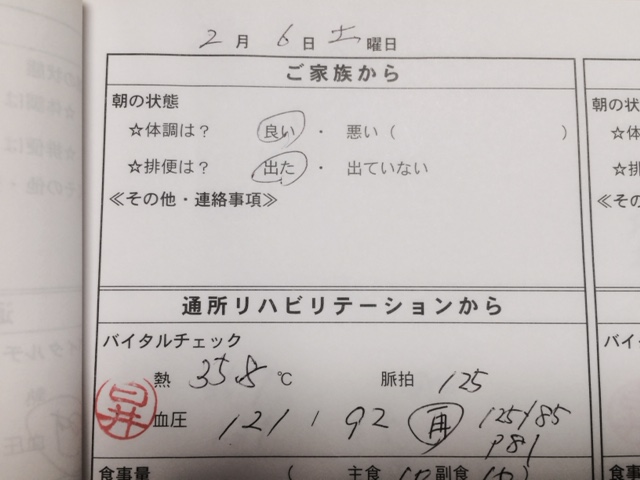 2月 6日 土曜日
ご家族から
朝の状態
☆体調は? 良い ・ 悪い( )
☆排便は? 出た ・ 出ていない
≪その他・連絡事項≫
通所リハビリテーションから
バイタルチェック
熱 35.8 ℃ 脈拍 125
血圧 121 / 92 再 125/85
P81
食事量 ( 主食 副食
朝の
☆体
☆排
≪その
バイ